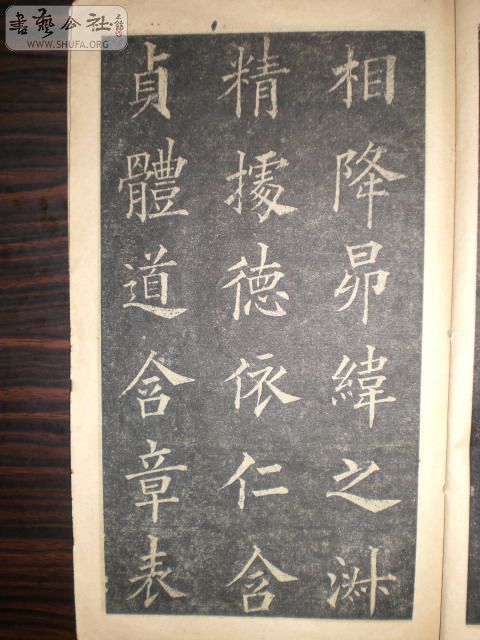 書藝公社
WWW.SHUFA.ORG
相降昴緯之淑
精據德依仁含
貞體道含章表